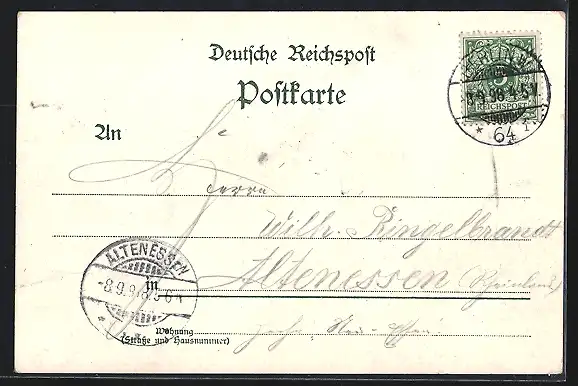 Deutsche Reichspost
Postkarte
REICHSPOST
8.9.98.4-5N.
* 64
An
Herrn
Wilh. Ringelbrandt
Altenessen (Rheinland)
ALTENESSEN
-8.9.98
in
Wohnung
(Straße und Hausnummer)